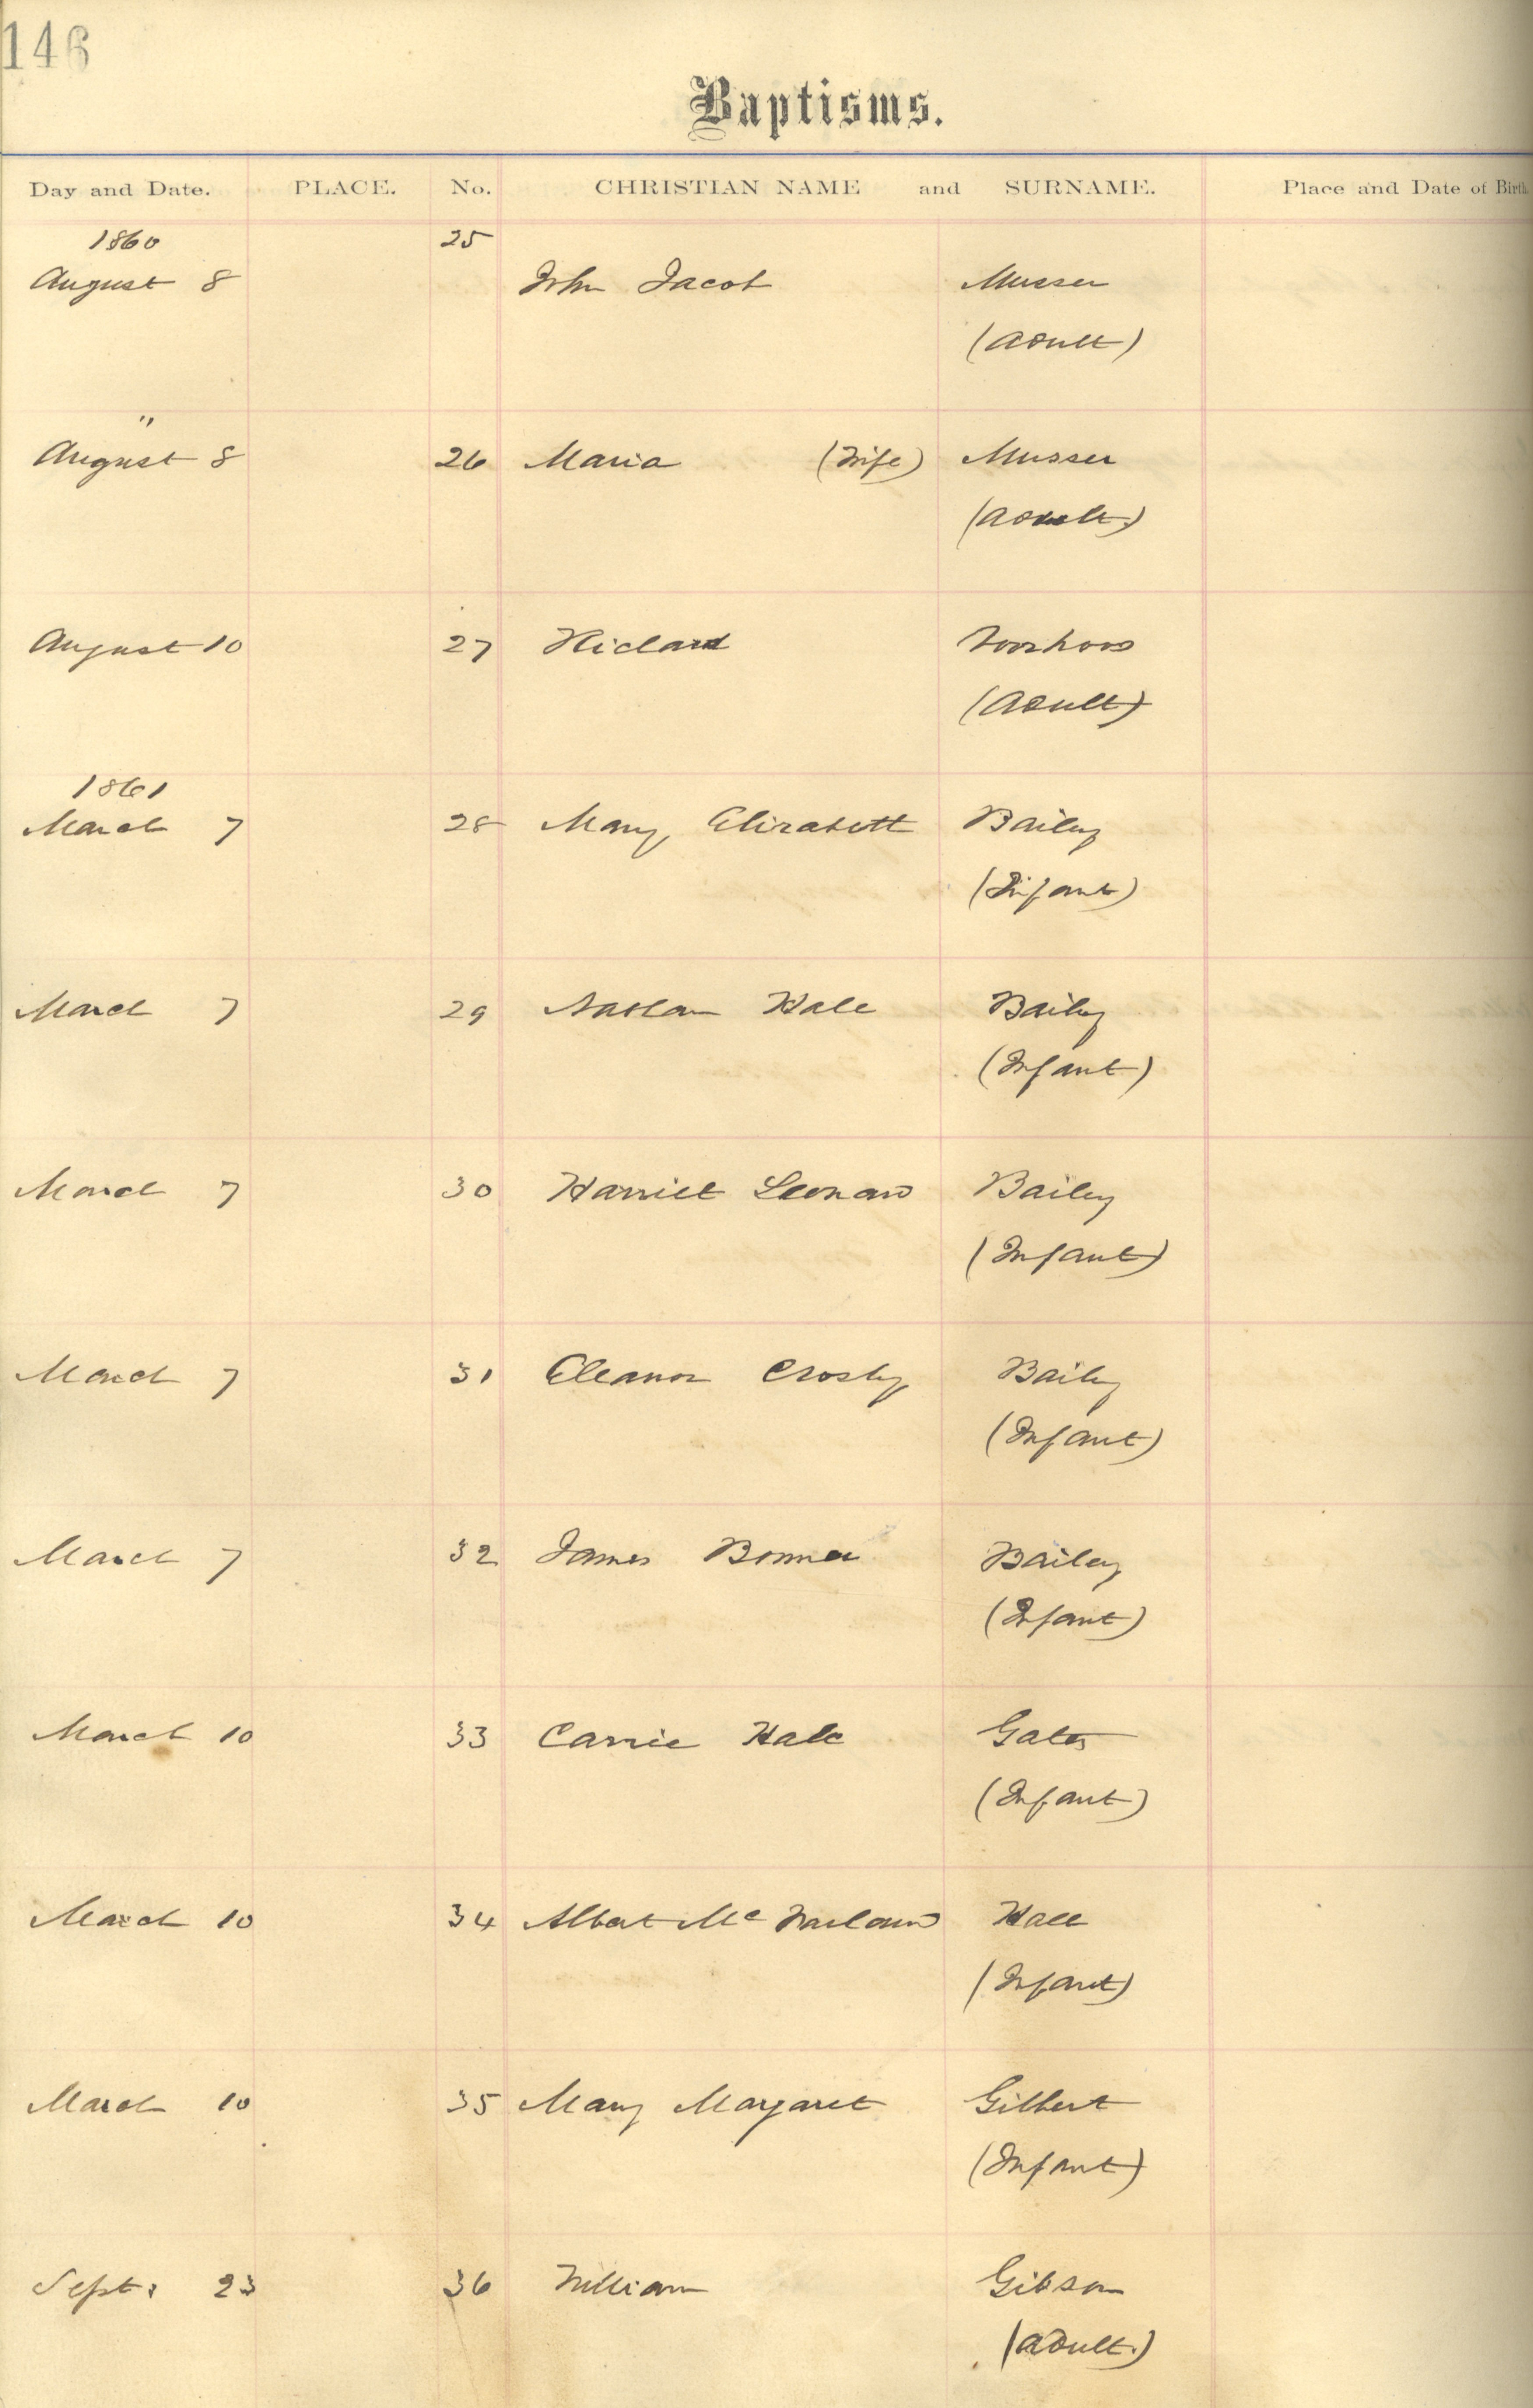 146
Baptisms.
Day and Date. PLACE. No. CHRISTIAN NAME and SURNAME. Place and Date of Birth
1860 25
August 8 John Jacob Musser
(Adult)
"
August 8 26 Maria (Wife) Musser
(Adult)
August 10 27 Voorhees
(Adult)
1861
March 7 28 Mary Elizabeth Bailey
(Infant)
March 7 29 Nathan Hale Bailey
(Infant)
March 7 30 Harriet Leonard Bailey
(Infant)
March 7 31 Eleanor Crosby Bailey
(Infant)
March 7 32 James Bonner Bailey
(Infant)
March 10 33 Carrie Hale Gates
(Infant)
March 10 34 Albert Mc Farland Hall
(Infant)
March 10 35 Mary Margaret Gilbert
(Infant)
Sept. 23 36 William Gibson
(Adult.)